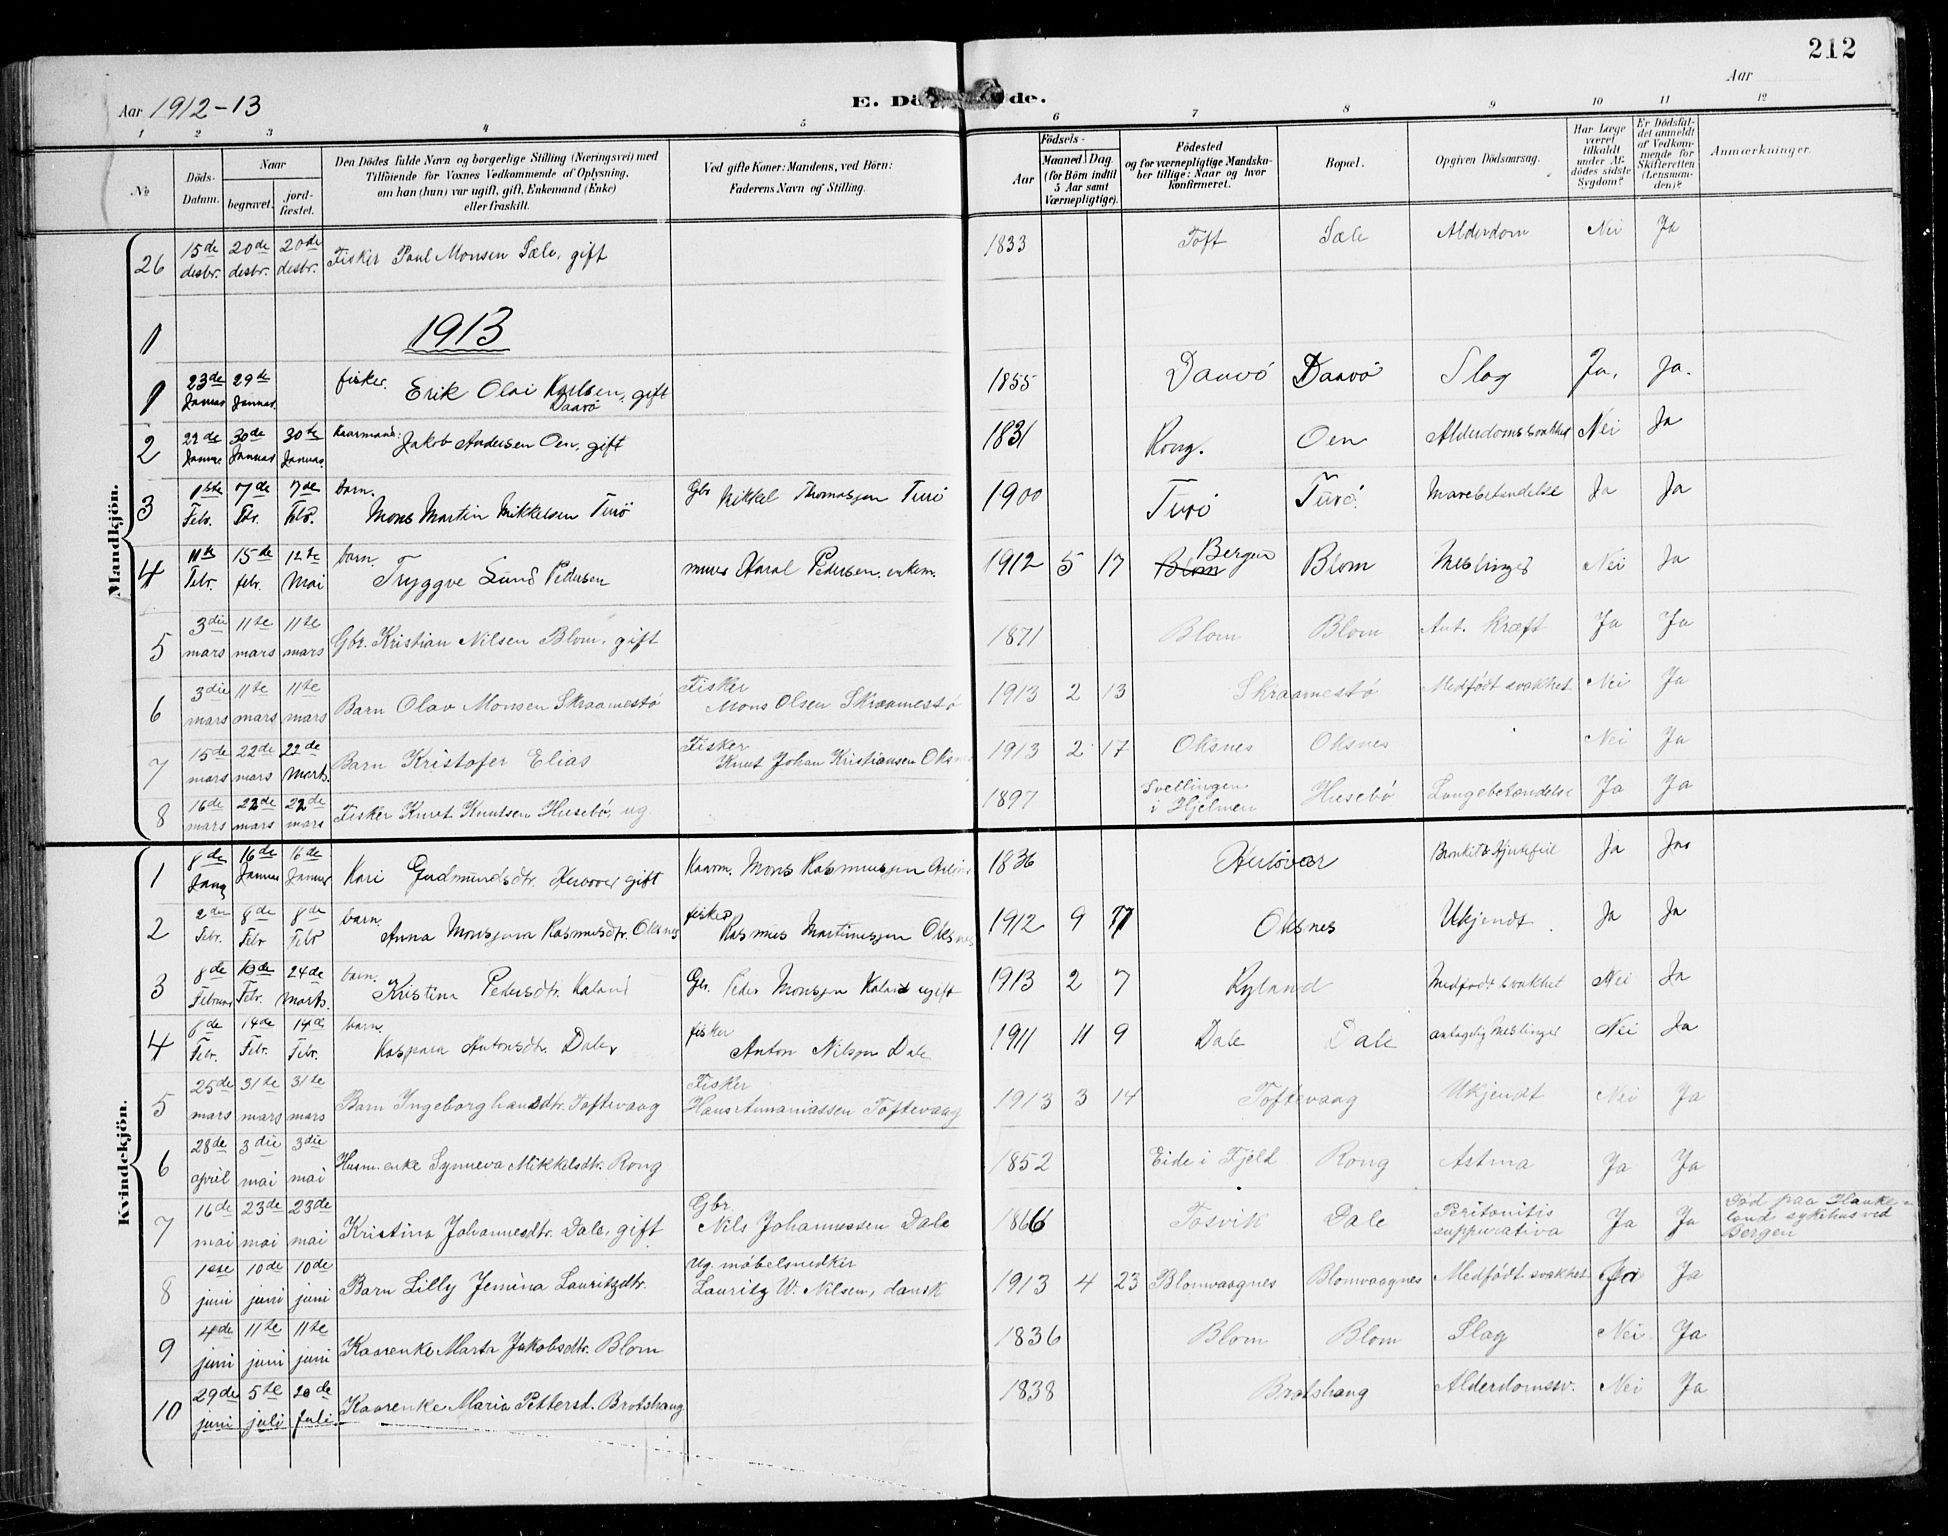 212
Aar 1912-13
E. Dö de.
Aar
1 2 3 4 5 6 7 8 9 10 11 12
No
Döds-Datum.
Naar
begravet.
jord-fæstet.
Den Dödes fulde Navn og borgerlige Stilling (Næringsvei) med
Tilföiende for Voxnes Vedkommende af Oplysning,
om han (hun) var ugift, gift, Enkemand (Enke)
eller fraskilt.
Ved gifte Koner: Mandens, ved Börn:
Faderens Navn og Stilling.
Födsels-
Aar
Maaned Dag
(for Börn indtil
5 Aar samt
Værnepligtige).
Födested
og for værnepligtige Mandska-
ber tillige: Naar og hvor
konfirmeret.
Bopæl.
Opgiven Dödsaarsag.
Har Læge
været
tilkaldt
under Af-
dödes sidste
Sygdom?
Er Dödsfal-
det anmeldt
af Vedkom-
mende for
Skifteretten
(Lensman-
den)?
Anmærkninger.
Mandkjön.
26 15de desbr. 20de desbr. 20de desbr. Fisker Paul Monsen Sæle, gift 1833 Toft Sæle Alderdom Nei Ja
1 1913
1 23de Januar 29de Januar fisker. Erik Olai Karlsen Daavø, gift 1855 Daavö Daavö Slag Ja, Ja.
2 22de Januar 30de Januar 30te Januar Kaarmand: Jakob Andersen Oen, gift 1831 Rong. Oen Alderdomssvakhed Nei Ja
3 1ste Febr. 7de Febr. 7de Febr. barn. Mons Martin Mikkelsen Turö Gbr Mikkel Thomassen Turö 1900 Turö Turö. Ja Ja
4 11te Febr. 15de febr. 12te Mai barn. Tryggve Lund Pedersen murer Haral Pedersen, enkem. 1912 5 17 Blom Bergen Blom Meslinger Nei Ja
5 3die mars 11te mars 11te mars Gbr. Kristian Nilsen Blom, gift 1871 Blom Blom Ant. Kræft Ja Ja
6 3die mars 11te mars 11te mars Barn Olav Monsen Skraamestö Fisker Mons Olsen Skraamestö 1913 2 13 Skraamestö Medfödt svakhet Nei Ja
7 15de mars 22de mars 22de Marts. Barn Kristofer Elias Fisker Knut Johan Kristiansen Oksn 1913 2 17 Oksnes Oksnes Nei Ja
8 16de mars 22de mars 22de mars Fisker Knut Knutsen Husebö, ug 1897 Svellingen i Hjelmen Husebö Lungebetændelse Ja Ja
Kvindekjön.
1 8de 16de Januar 16de Januar Kari Gudmundsdtr. Herløver gift Kaarm. Mons Rasmussen 1836 Herlövær Ja Ja
2 2den Febr. 8de Febr 8de Febr barn. Anna Monsena Rasmusdtr. Oksnes fisker Rasmus Martinussen Oksnes 1912 9 Oksnes Ukjendt. Ja Ja
3 8de Februar 19de Febr. 24de Marts. barn. Kristina Pedersdtr. Kaland Gbr. Peder Monsen Kaland ugift 1913 2 7 Ryland Medfödt svakhet Nei Ja
4 8de Febr. 14de Febr. 14de Febr. barn. Kaspara Antonsdtr. Dale, fisker Anton Nilsen Dale 1911 11 9 Dale Dale antagelig Meslinger Nei Ja
5 25de mars 31te mars 31te mars Barn Ingeborg hansdtr. Toftevaag Fisker Hans Annaniassen Toftevaag 1913 3 14 Toftevaag Ukjendt Nei Ja
6 28de april 3die mai 3die mai Husm. enke Synneva Mikkelsdtr. Rong 1852 Eide i Fjeld Rong Astma Ja Ja
7 16de mai 23de mai 23de mai Kristina Johannesdtr. Dale, gift Gbr. Nils Johannessen Dale 1866 Tosvik Dale Peritonitis suppurativa Ja Ja Död paa Haukeland sykehus ved Bergen
8 1ste juni 10de juni 10de juni Barn Lilly Jemina Lauritzdtr. Ug. möbelsnedker Lauritz W. Nilsen, dansk 1913 4 23 Blomvaagnes Blomvaagnes Medfödt svakhet Ja Ja
9 4de juni 11te juni 11te juni Kaarenke Marta Jakobsdtr. Blom 1836 Blom Blom Slag Nei Ja
10 29de juni 5te juli 20de Juli. Kaarenke Maria Pettersd. Brotshaug 1838 Brotshaug Alderdomssv. Nei Ja